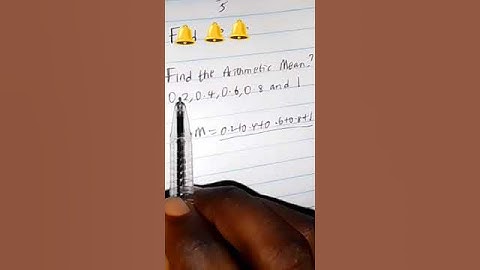 5
Find the Arithmetic Mean?
0.2, 0.4, 0.6, 0.8 and 1
M = 0.2+0.4+0.6+0.8+1